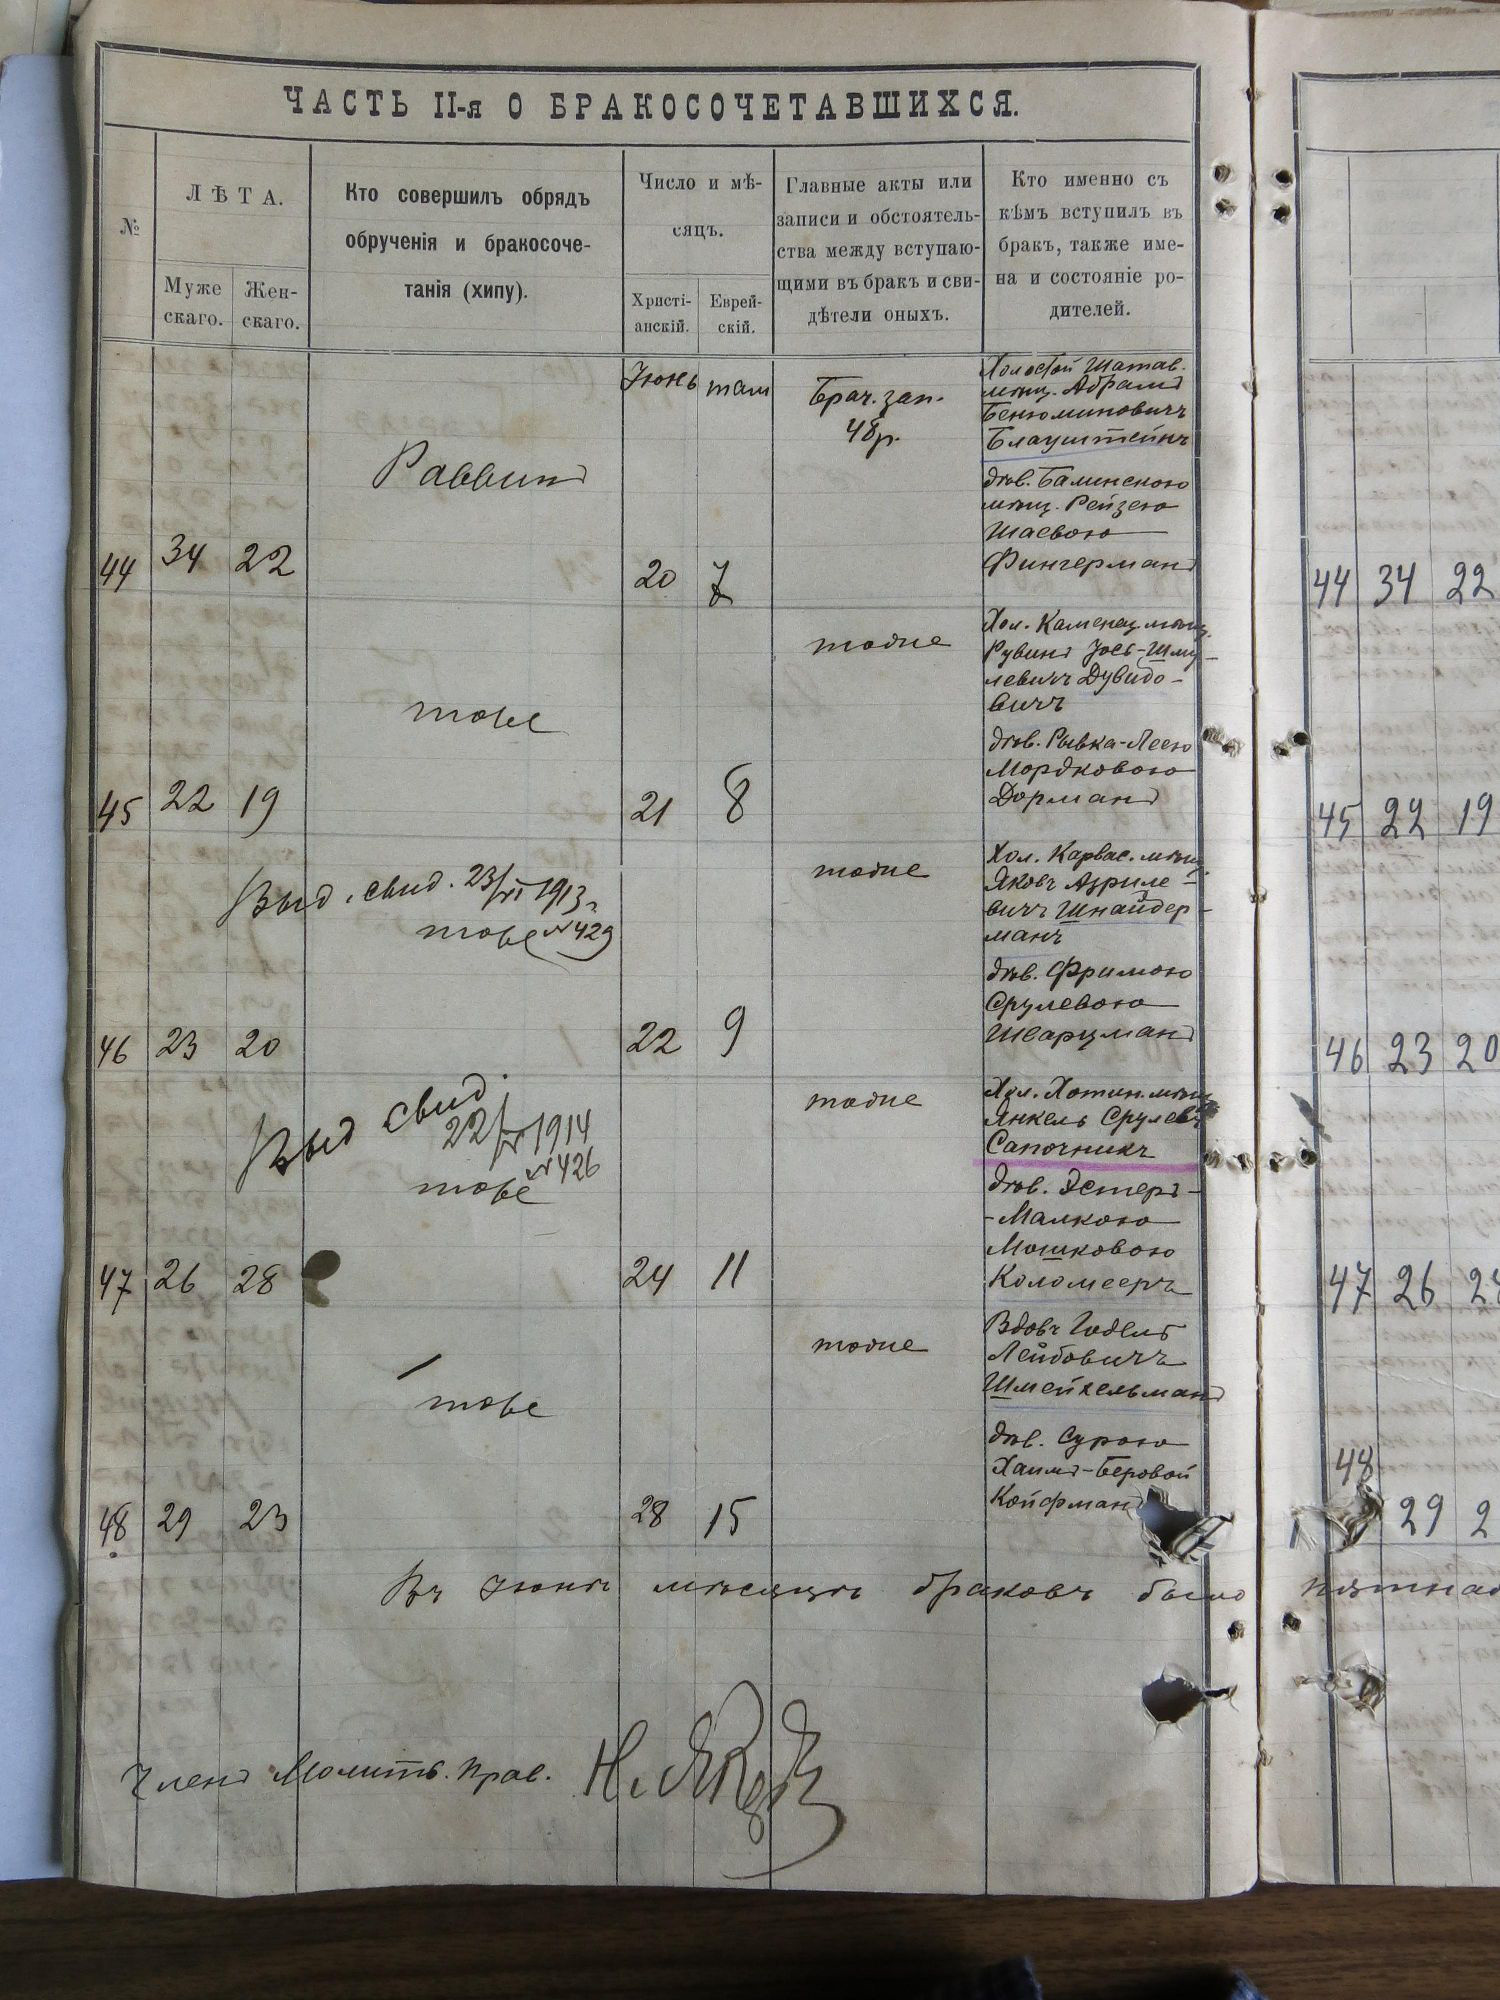 ЧАСТЬ II-я О БРАКОСОЧЕТАВШИХСЯ.
№
ЛѢТА.
Муже
скаго.
Жен-
скаго.
Кто совершилъ обрядъ
обрученія и бракосоче-
танія (хипу).
Число и мѣ-
сяцъ.
Христі-
анскій.
Еврей-
скій.
Главные акты или
записи и обстоятель-
ства между вступаю-
щими въ бракъ и сви-
дѣтели оныхъ.
Кто именно съ
кѣмъ вступилъ въ
бракъ, также име-
на и состояніе ро-
дителей.
44 34 22
Раввинъ
Іюнь
20
7
Брач. зап.
48 р.
Холостой Шатав.
мѣщ. Абрамъ
Бенюминовичъ
Блауштейнъ
дѣв. Балинскою
мѣщ. Рейзею
Шаевою
Фингерманъ
45 22 19
тоже
21 8
тоже
Хол. Каменец. мѣщ.
Рувинъ Іось-Шму-
левичъ Дувидо-
вичъ
дѣв. Рывка-Леею
Мордковою
Дорманъ
46 23 20
Выд. свид. 23/VI 1913 г.
№ 429
тоже
22 9
тоже
Хол. Карвас. мѣщ.
Яковъ Азриле-
вичъ Шнайдер-
манъ
дѣв. Фримою
Срулевою
Шварцманъ
47 26 28
Выд свид.
22/ 1914
№ 426
тоже
24 11
тоже
Хол. Хотин. мѣщ
Янкель Срулев
Сапочникъ
дѣв. Эстеръ-
-Малкою
Мошковою
Коломееръ
48 29 23
тоже
28 15
тоже
Вдовъ Годель
Лейбовичъ
Шмейхельманъ
дѣв. Сурою
Хаимъ-Беровой
Койфман
Въ Іюнѣ мѣсяцѣ браковъ было пятнад
Членъ Молитв. прав.
44 34 22
45 22 19
46 23 20
47 26 2
48 29 2